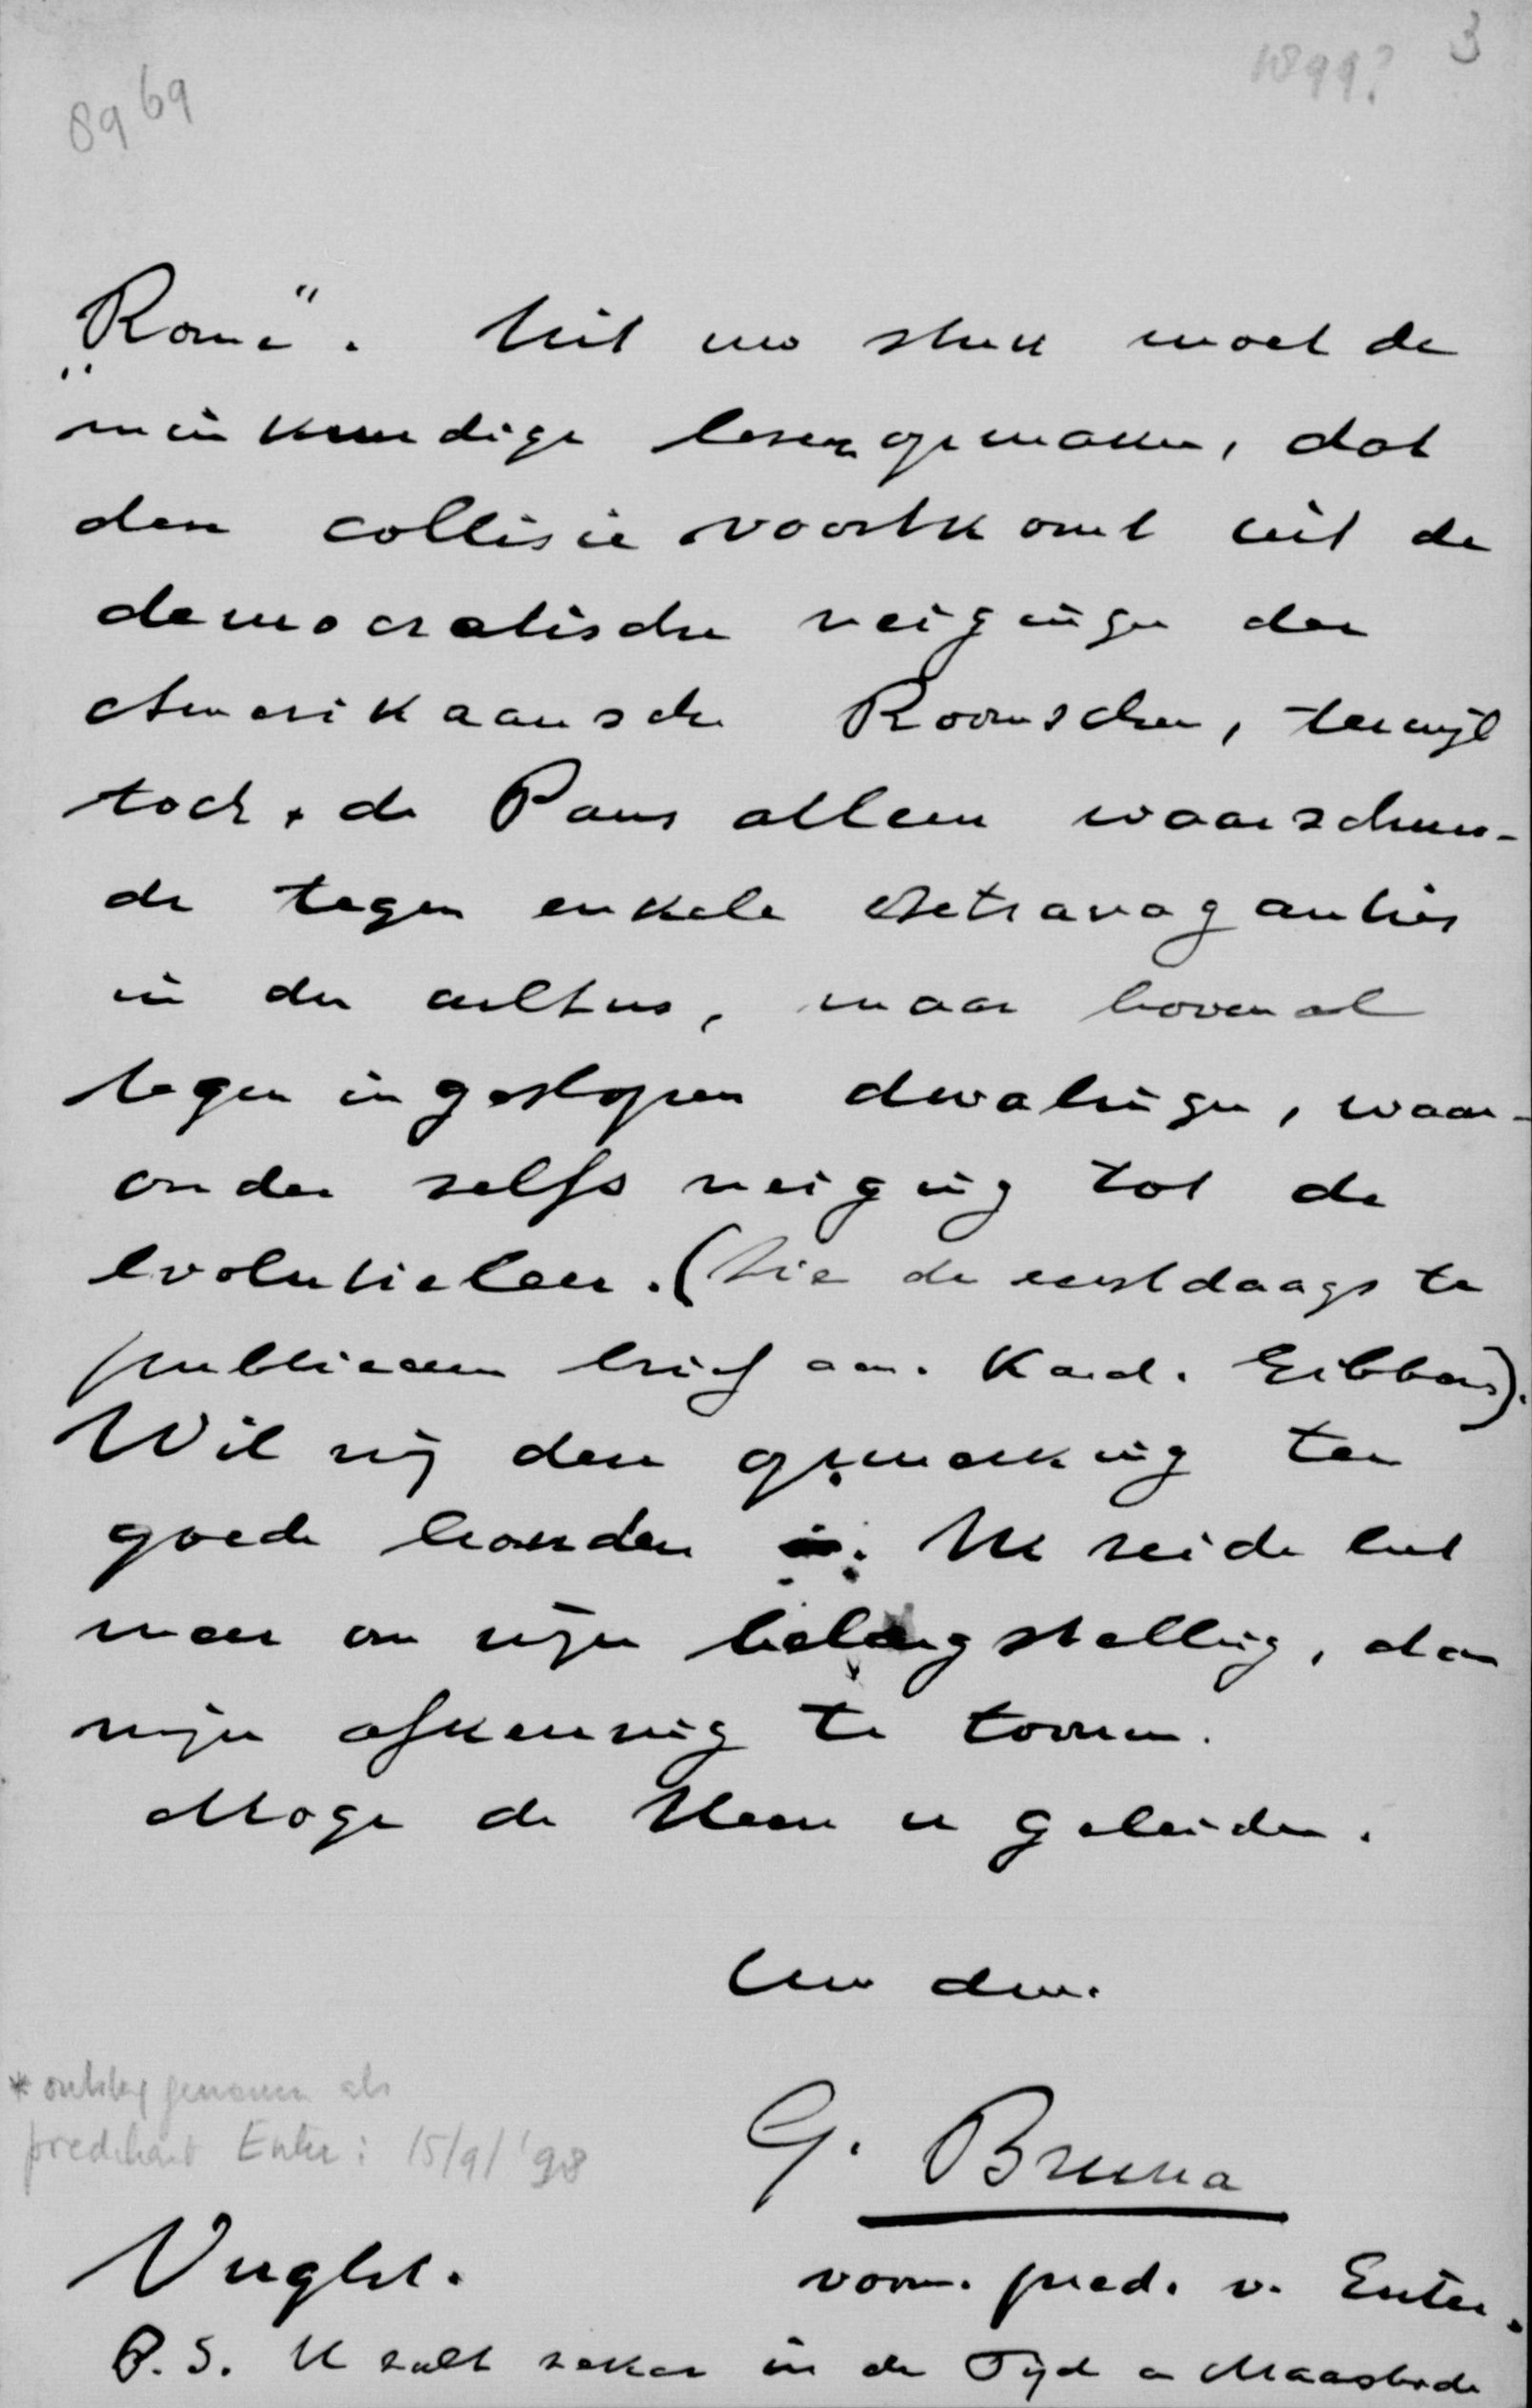 8969
1899? 3
„Rome". Uit uw stuk moet de
minkundige lezer opmaken, dat
deze collisie voortkomt uit de
democratische neigingen der
Amerikaansche Roomschen, terwijl
toch de Paus alleen waarschuw-
de tegen enkele extravaganties
in den cultus, maar bovenal
tegen ingeslopen dwalingen, waar-
onder zelfs neiging tot de
evolutieleer. (Zie de eerstdaags te
publiceeren brief aan Kard. Gibbons).
Wil mij deze opmerking ten
goede houden. Ik zeide het
meer om mijn belangstelling, dan
mijn afkeuring te toonen.
Moge de Heere u geleiden.
Uw dw.
* ontslag genomen als
predikant Enter: 15/9/'98
G. Bruna
Vught.
voorm. pred. v. Enter.
P.S. U zult zeker in de Tijd en Maasbode